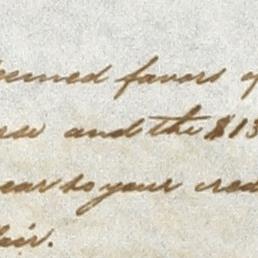 eemed favors of
and the $13
ear to your cred
fair.